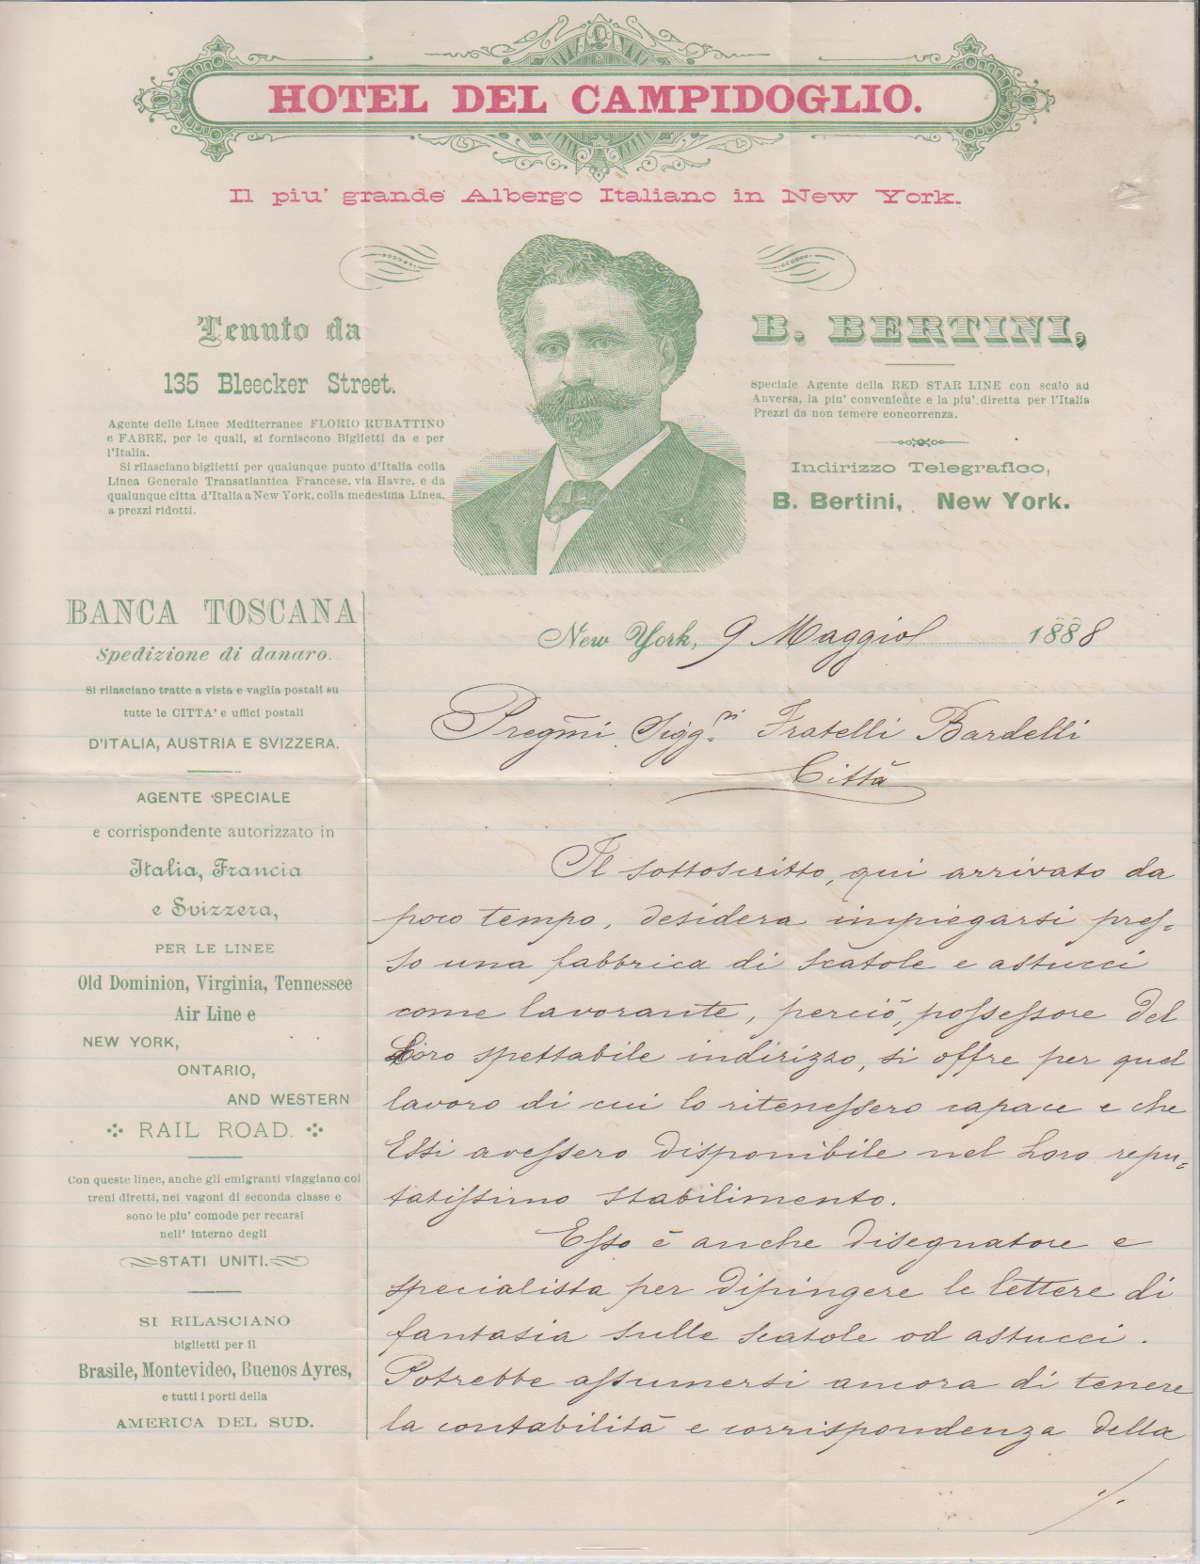 HOTEL DEL CAMPIDOGLIO.
Il piu' grande Albergo Italiano in New York.
Tenuto da
135 Bleecker Street.
Agente delle Linee Mediterranee FLORIO RUBATTINO
e FABRE, per le quali, si forniscono Biglietti da e per
l'Italia.
Si rilasciano biglietti per qualunque punto d'Italia colla
Linea Generale Transatlantica Francese, via Havre, e da
qualunque citta d'Italia a New York, colla medesima Linea,
a prezzi ridotti.
B. BERTINI,
Speciale Agente della RED STAR LINE con scalo ad
Anversa, la piu' conveniente e la piu' diretta per l'Italia
Prezzi da non temere concorrenza.
Indirizzo Telegrafico,
B. Bertini, New York.
BANCA TOSCANA
Spedizione di danaro.
Si rilasciano tratte a vista e vaglia postali su
tutte le CITTA' e uffici postali
D'ITALIA, AUSTRIA E SVIZZERA.
AGENTE SPECIALE
e corrispondente autorizzato in
Italia, Francia
e Svizzera,
PER LE LINEE
Old Dominion, Virginia, Tennessee
Air Line e
NEW YORK,
ONTARIO,
AND WESTERN
RAIL ROAD.
Con queste linee, anche gli emigranti viaggiano coi
treni diretti, nei vagoni di seconda classe e
sono le piu' comode per recarsi
nell' interno degli
STATI UNITI.
SI RILASCIANO
biglietti per il
Brasile, Montevideo, Buenos Ayres,
e tutti i porti della
AMERICA DEL SUD.
New York, 9 Maggiol 1888
Pregmi Sigg.ri Fratelli Bardelli
Città
Il sottoscritto, qui arrivato da
poco tempo, desidera impiegarsi pres-
so una fabbrica di scatole e astucci
come lavorante, perciò, possessore del
Loro spettabile indirizzo, si offre per quel
lavoro di cui lo ritenessero capace e che
Essi avessero disponibile nel Loro repu-
tatissimo stabilimento.
Esso è anche disegnatore e
specialista per dipingere le lettere di
fantasia sulle scatole od astucci.
Potrebbe assumersi ancora di tenere
la contabilità e corrispondenza della
./.